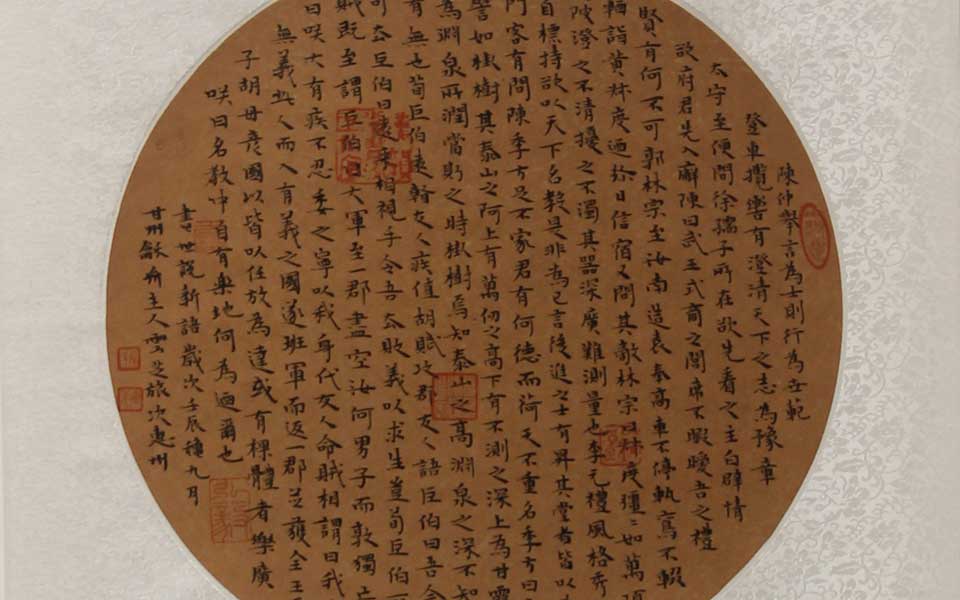 陳仲舉言為士則行為世範
登車攬轡有澄清天下之志為豫章
太守至便問徐孺子所在欲先看之主白群情
欲府君先入廨陳曰武王式商之閭席不暇煖吾之禮
賢有何不可郭林宗至汝南造袁奉高車不停軌鸞不輟
軛詣黃叔度過於日信宿人問其故林宗曰叔度彊〻如萬頃
陂澄之不清擾之不濁其器深廣難測量也李元禮風格秀
自標持欲以天下名教是非為己言後進之士有昇其堂者皆以
門客有問陳季方足下家君有何德而荷天下重名季方曰
譬如樹樹其泰山之阿上有萬仞之高下有不測之深上為甘露
為淵泉所潤當斯之時樹樹焉知泰山之高淵泉之深不知
有無也荀巨伯遠看友人疾值胡賊攻郡友人語巨伯曰吾今
可去巨伯曰遠來相視子令吾去敗義以求生豈荀巨伯
賊既至謂巨伯曰大軍至一郡盡空汝何男子而敢獨止
曰友人有疾不忍委之寧以我身代友人命賊相謂曰我
無義之人而入有義之國遂班軍而返一郡並獲全王
子胡母彥國以皆以任放為達或有裸體者樂廣
咲曰名教中自有樂地何為迺爾也
書世說新語歲次壬辰九月
甘州龢齋主人雲芝旅次惠州